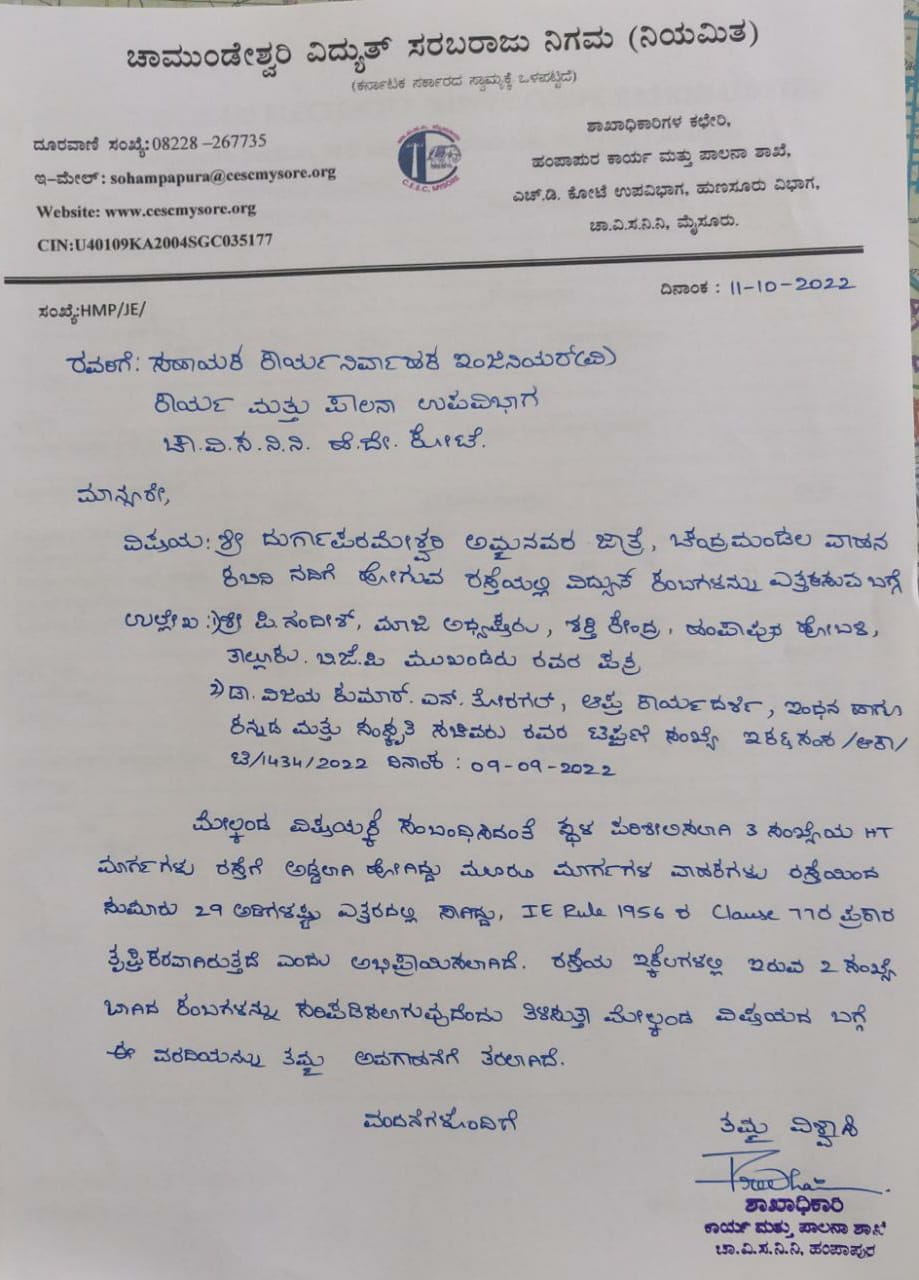 ಚಾಮುಂಡೇಶ್ವರಿ ವಿದ್ಯುತ್ ಸರಬರಾಜು ನಿಗಮ (ನಿಯಮಿತ)
(ಕರ್ನಾಟಕ ಸರ್ಕಾರದ ಸ್ವಾಮ್ಯಕ್ಕೆ ಒಳಪಟ್ಟಿದೆ)
ದೂರವಾಣಿ ಸಂಖ್ಯೆ:08228 –267735
ಇ–ಮೇಲ್ : sohampapura@cescmysore.org
Website: www.cescmysore.org
CIN:U40109KA2004SGC035177
C.E.S.C, MYSORE
ಶಾಖಾಧಿಕಾರಿಗಳ ಕಛೇರಿ,
ಹಂಪಾಪುರ ಕಾರ್ಯ ಮತ್ತು ಪಾಲನಾ ಶಾಖೆ,
ಎಚ್.ಡಿ. ಕೋಟೆ ಉಪವಿಭಾಗ, ಹುಣಸೂರು ವಿಭಾಗ,
ಚಾ.ವಿ.ಸ.ನಿ.ನಿ, ಮೈಸೂರು.
ಸಂಖ್ಯೆ:HMP/JE/
ದಿನಾಂಕ : 11-10-2022
ರವರಿಗೆ: ಸಹಾಯಕ ಕಾರ್ಯನಿರ್ವಾಹಕ ಇಂಜಿನಿಯರ್(ವಿ)
ಕಾರ್ಯ ಮತ್ತು ಪಾಲನಾ ಉಪವಿಭಾಗ
ಚಾ.ವಿ.ಸ.ನಿ.ನಿ. ಹೆ.ದೇ. ಕೋಟೆ.
ಮಾನ್ಯರೇ,
ವಿಷಯ: ಶ್ರೀ ದುರ್ಗಾಪರಮೇಶ್ವರಿ ಅಮ್ಮನವರ ಜಾತ್ರೆ, ಚಂದ್ರಮಂಡಲ ವಾಹನ
ಕಬಿನಿ ನದಿಗೆ ಹೋಗುವ ರಸ್ತೆಯಲ್ಲಿ ವಿದ್ಯುತ್ ಕಂಬಗಳನ್ನು ಎತ್ತರಿಸುವ ಬಗ್ಗೆ
ಉಲ್ಲೇಖ :1)ಶ್ರೀ ಪಿ.ನಂದೀಶ್, ಮಾಜಿ ಅಧ್ಯಕ್ಷರು, ಶಕ್ತಿ ಕೇಂದ್ರ, ಹಂಪಾಪುರ ಹೋಬಳಿ,
ತಾಲ್ಲೂಕು. ಬಿ.ಜೆ.ಪಿ ಮುಖಂಡರು ರವರ ಪತ್ರ
2) ಡಾ. ವಿಜಯ ಕುಮಾರ್. ಎನ್. ತೋರಗಲ್, ಆಪ್ತ ಕಾರ್ಯದರ್ಶಿ, ಇಂಧನ ಹಾಗೂ
ಕನ್ನಡ ಮತ್ತು ಸಂಸ್ಕೃತಿ ಸಚಿವರು ರವರ ಟಿಪ್ಪಣಿ ಸಂಖ್ಯೆ /ಆಕಾ/
ಟಿ/1434/2022 ದಿನಾಂಕ : 09-09-2022
ಮೇಲ್ಕಂಡ ವಿಷಯಕ್ಕೆ ಸಂಬಂಧಿಸಿದಂತೆ ಸ್ಥಳ ಪರಿಶೀಲಿಸಲಾಗಿ 3 ಸಂಖ್ಯೆಯ HT
ಮಾರ್ಗಗಳು ರಸ್ತೆಗೆ ಅಡ್ಡಲಾಗಿ ಹೋಗಿದ್ದು ಮೂರೂ ಮಾರ್ಗಗಳ ವಾಹಕಗಳು ರಸ್ತೆಯಿಂದ
ಸುಮಾರು 29 ಅಡಿಗಳಷ್ಟು ಎತ್ತರದಲ್ಲಿ ಸಾಗಿದ್ದು, IE Rule 1956 ರ Clause 77ರ ಪ್ರಕಾರ
ತೃಪ್ತಿಕರವಾಗಿರುತ್ತದೆ ಎಂದು ಅಭಿಪ್ರಾಯಿಸಲಾಗಿದೆ. ರಸ್ತೆಯ ಇಕ್ಕೆಲಗಳಲ್ಲಿ ಇರುವ 2 ಸಂಖ್ಯೆ
ಬಾಗಿದ ಕಂಬಗಳನ್ನು ಸರಿಪಡಿಸಲಾಗುವುದೆಂದು ತಿಳಿಸುತ್ತಾ ಮೇಲ್ಕಂಡ ವಿಷಯದ ಬಗ್ಗೆ
ಈ ವರದಿಯನ್ನು ತಮ್ಮ ಅವಗಾಹನೆಗೆ ತರಲಾಗಿದೆ.
ವಂದನೆಗಳೊಂದಿಗೆ
ತಮ್ಮ ವಿಶ್ವಾಸಿ
ಶಾಖಾಧಿಕಾರಿ
ಕಾರ್ಯ ಮತ್ತು ಪಾಲನಾ ಶಾಖೆ
ಚಾ.ವಿ.ಸ.ನಿ.ನಿ, ಹಂಪಾಪುರ